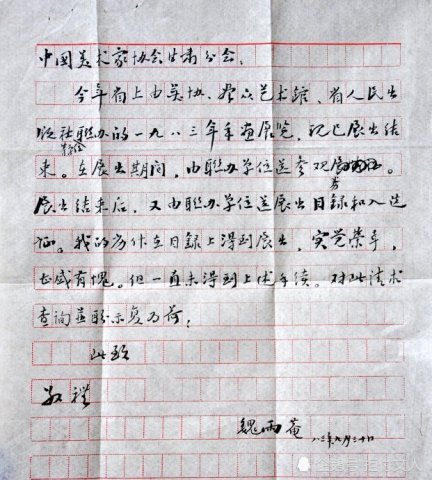 中国美术家协会甘肃分会:
今年省上由美协、群众艺术馆、省人民出
版社联办的一九八三年年画展览,现已展出结
束。在展出期间,由联办单位送参观
券
展出结束后,又由联办单位送展出目录和入选
证。我的劣作在目录上得到展出,实觉荣幸,
也感有愧。但一直未得到上述手续。对此请求
查询并盼示复为荷,
此致
敬礼
魏雨菴 八三年九月三十日